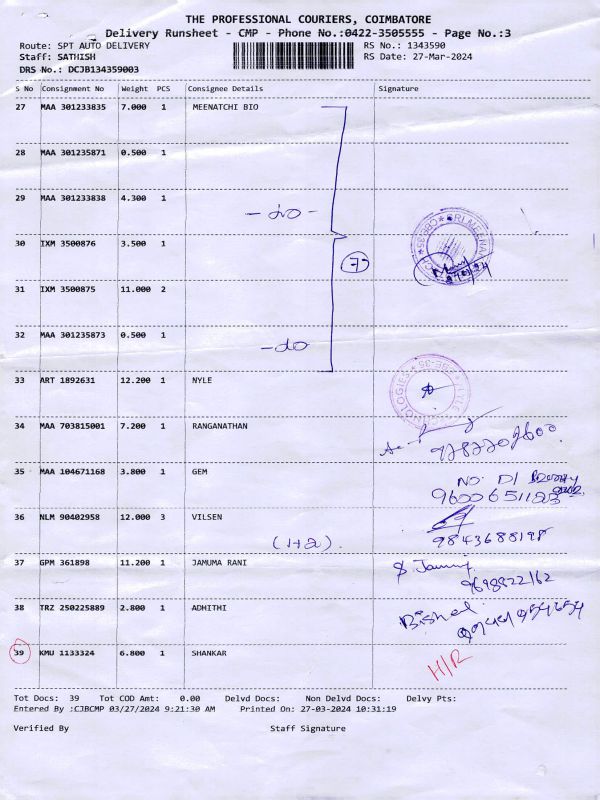 THE PROFESSIONAL COURIERS, COIMBATORE
Delivery Runsheet - CMP - Phone No.:0422-3505555 - Page No.:3
Route: SPT AUTO DELIVERY RS No.: 1343590
Staff: SATHISH RS Date: 27-Mar-2024
DRS No.: DCJB134359003
S No Consignment No Weight PCS Consignee Details Signature
27 MAA 301233835 7.000 1 MEENATCHI BIO
28 MAA 301235871 0.500 1
29 MAA 301233838 4.300 1
- do -
30 IXM 3500876 3.500 1
7
31 IXM 3500875 11.000 2
32 MAA 301235873 0.500 1
- do
33 ART 1892631 12.200 1 NYLE
34 MAA 703815001 7.200 1 RANGANATHAN
35 MAA 104671168 3.800 1 GEM
No: D1
36 NLM 90402958 12.000 3 VILSEN
(1+2). 9843688198
37 GPM 361898 11.200 1 JAMUMA RANI
9698822162
38 TRZ 250225889 2.800 1 ADHITHI
39 KMU 1133324 6.800 1 SHANKAR
H/R
Tot Docs: 39 Tot COD Amt: 0.00 Delvd Docs: Non Delvd Docs: Delvy Pts:
Entered By :CJBCMP 03/27/2024 9:21:30 AM Printed On: 27-03-2024 10:31:19
Verified By Staff Signature